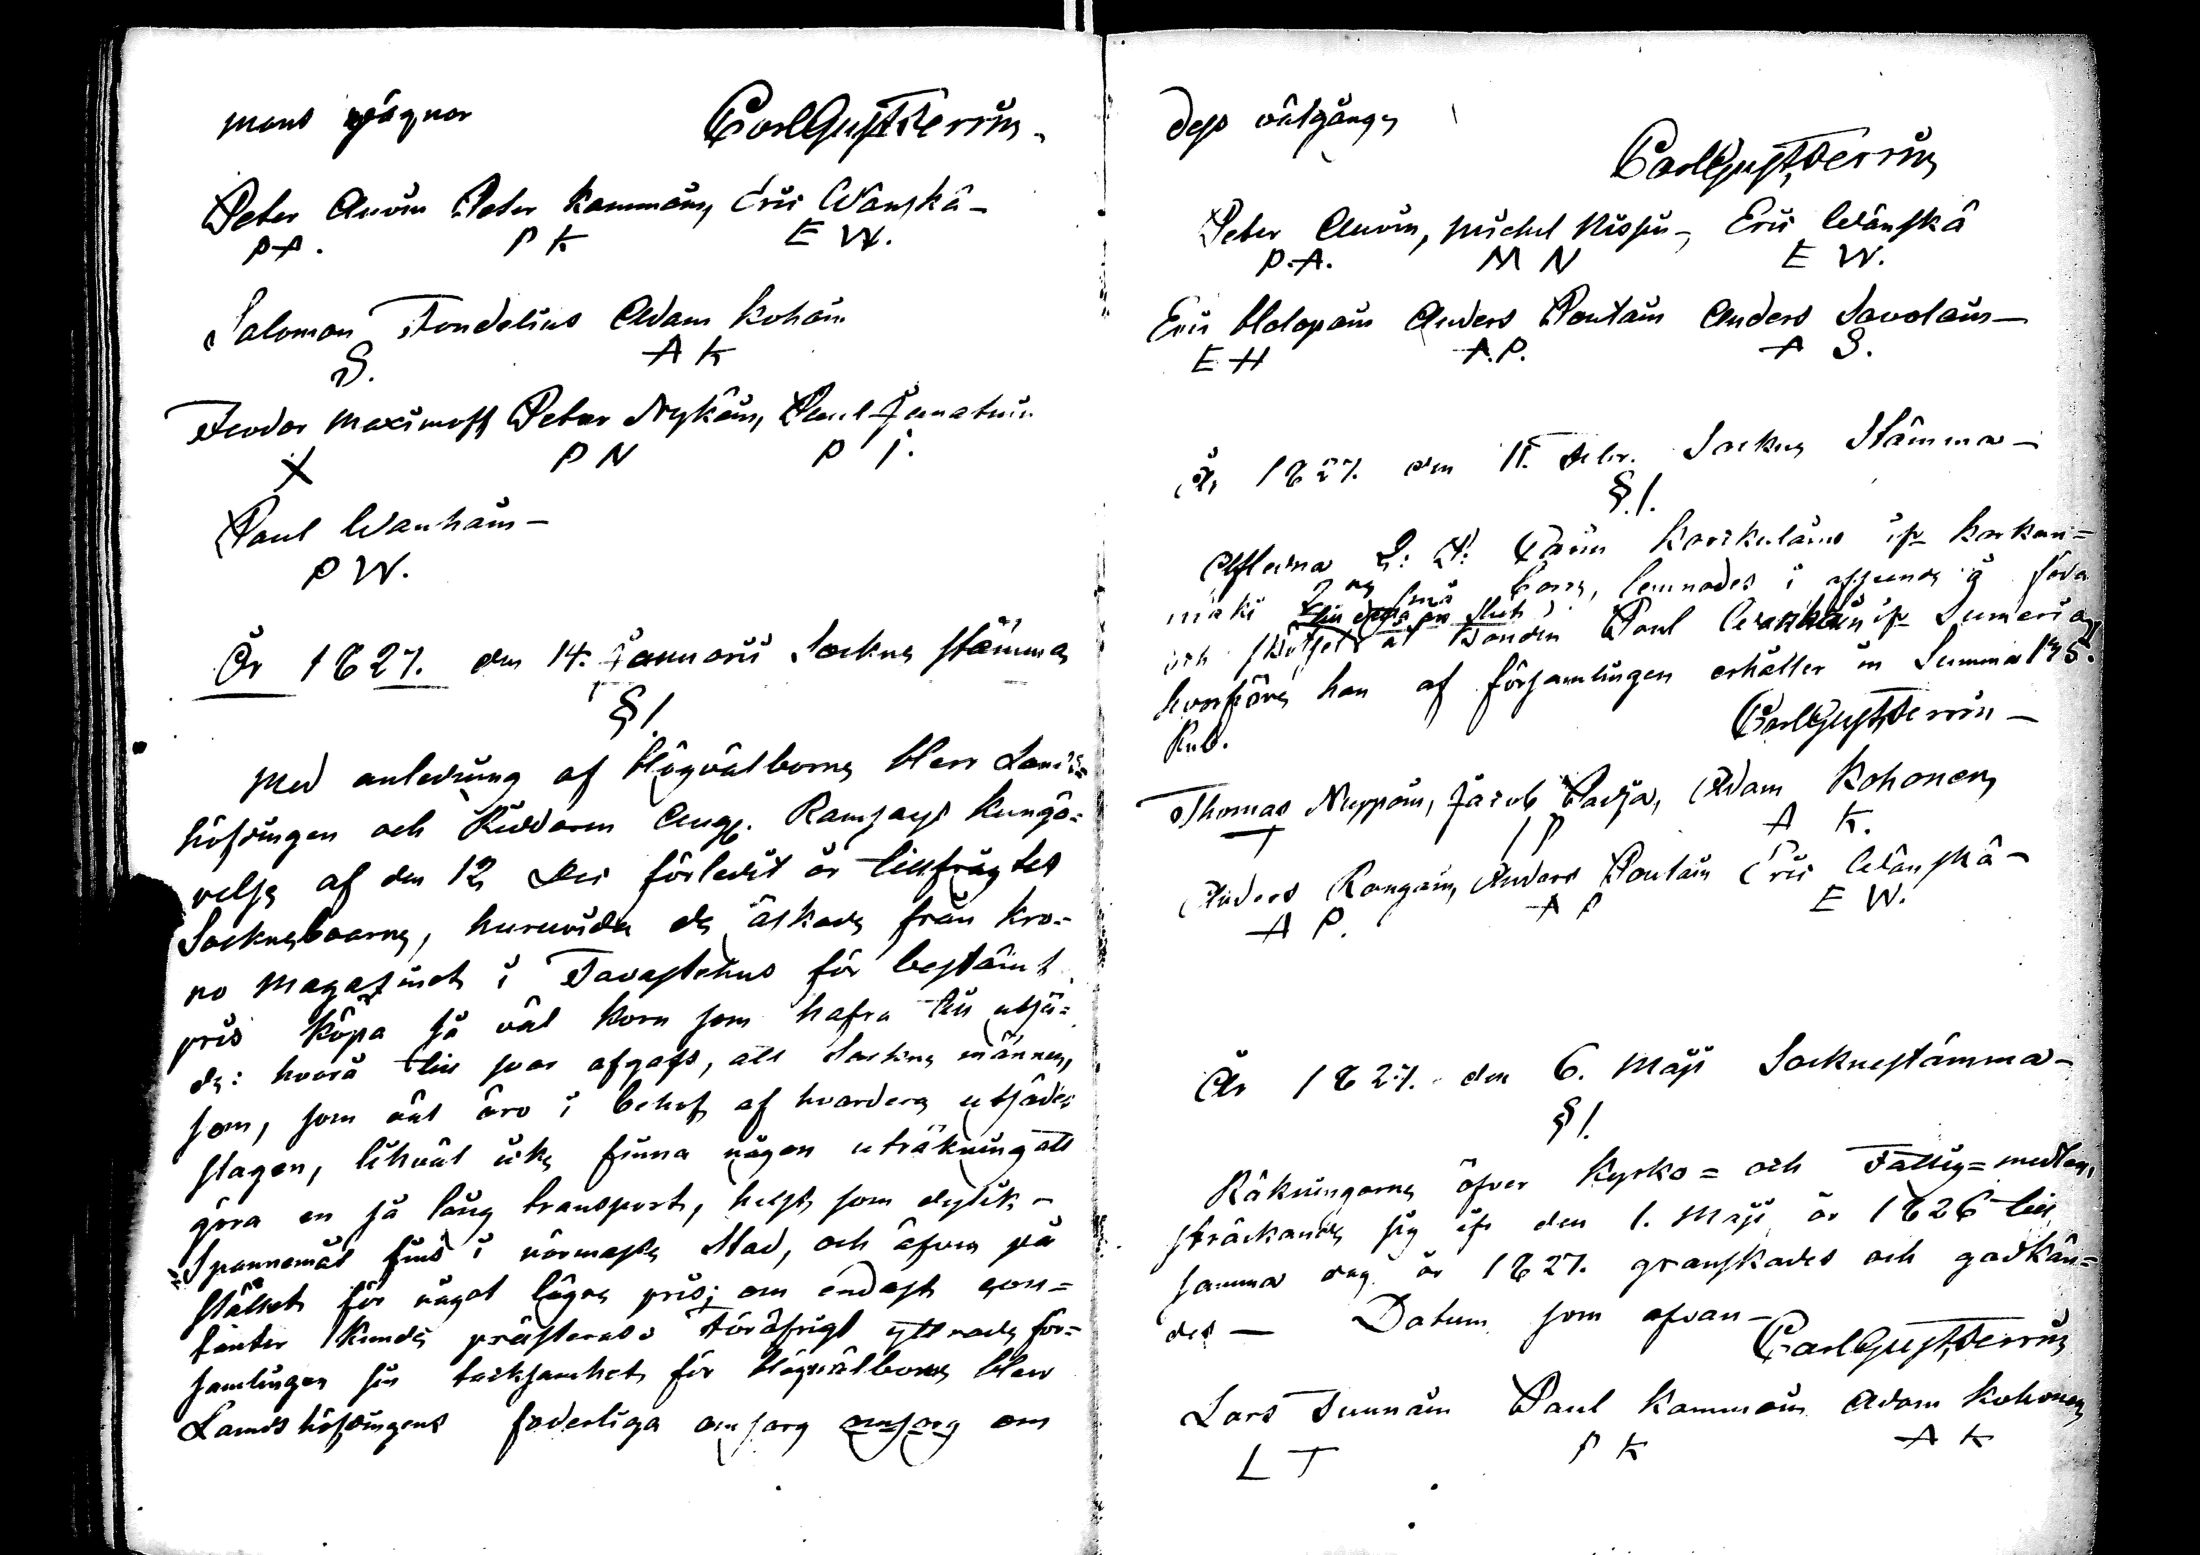 mans vägnar Carl Gust. Ferrin
Peter Auvin Peter Kammoin, Eric Wänskä
P A. P K E W.
Salomon Fondelius Adam Kohoin
S. A K
Feodor Maximoff Peter Nykäin, Paul
X P N P J.
Paul Wanhain
P W.
År 1827. den 14. Januarii Sockne stämma
§ 1.
Med anledning af Högvälborne Herr Lands
höfdingen och Riddaren Aug. Ramsays kungö=
relse af den 12 förledit år tillfrågtes
Sockneboarne, huruvida de äskade från Kro=
no Magazinet i Tavastehus för bestämt
pris köpa så väl Korn som hafra till utsä=
de: hvarå till svar afgafs, att Sockne männen,
som, som väl äro i behof af hvardera utsädes
slagen, likväl icke finna någon uträkning att
göra en så lång transport, helst som dylik
Spannemål fins i närmaste Stad, och äfven på
stället för något lägre pris; om endast con=
tanter kunde präesteras. Föröfrigt yttrade för=
samlingen sin tacksamhet för Högvälborne Herr
Landshöfdingens faderliga omsorg omsorg om
dess välgång
Carl Gust. Ferrin
Peter Auvin, Michel Nissin, Eric Wänskä
P. A. M N E W.
Eric Holopain Anders Poutain Anders Savolain
E H A. P. A S.
År 1827. den 11. Febr. Sockne Stämma
§. 1.
Afledna Karin Karikulains ifr. Korkea=
mäki 2 ne små barn, lemnades i
och skötsel åt Bonden Paul ifr.
hvarföre han af församlingen erhåller en Summa 175.
Rub. Carl Gust. Ferrin
Thomas Nuppoin, Jacob Adam Kohonen
T I P A K.
Anders Anders Poutain Eric Wänskä
A P. A P E W.
År 1827. den 6. Maji Socknestämma
§ 1.
Räkningarne öfver Kyrko= och Fattig=medlen,
sträckande sig ifr den 1. Maji år 1826 till
samma dag år 1827. granskades och godkän=
des — Datum som ofvan
Carl Gust. Ferrin
Lars Paul Kammoin Adam Kohonen
L T P K A K